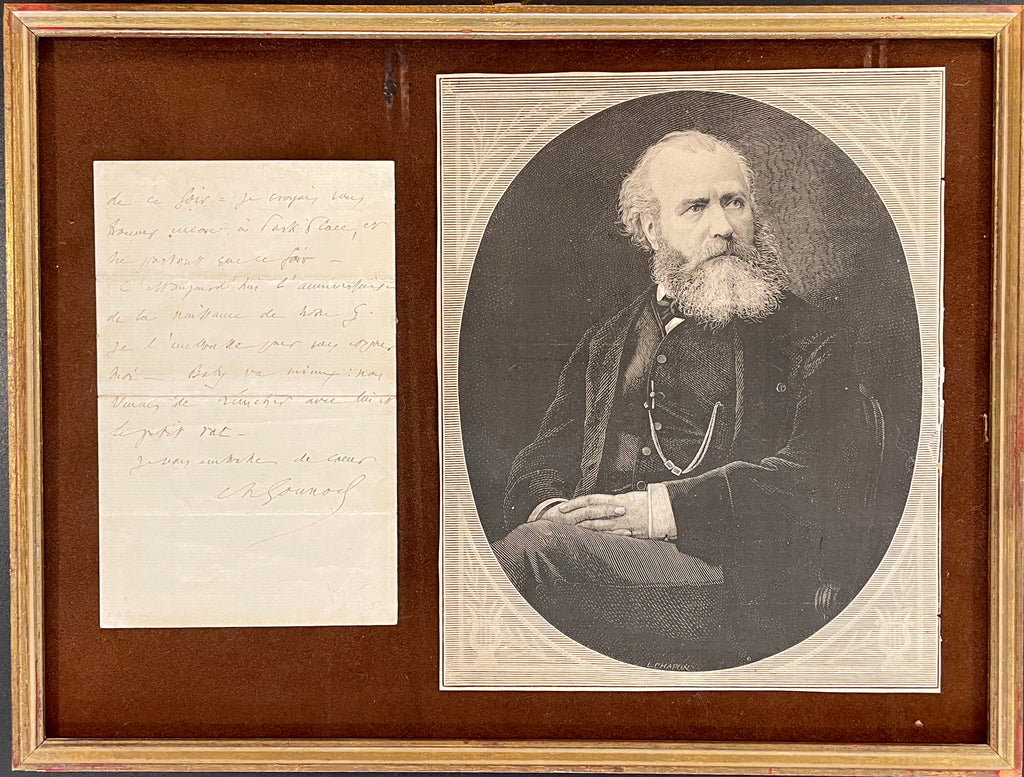 de ce soir = je croyais vous
trouver encore, à Park Place, et
ne partant que ce soir —
C'est aujourd'hui l'anniversaire
de la naissance de notre G.
Je l'embrasse pour vous
moi — Baby va mieux: nous
venons de luncher avec lui et
le petit rat —
je vous embrasse de coeur
Ch Gounod
C. CHAPON